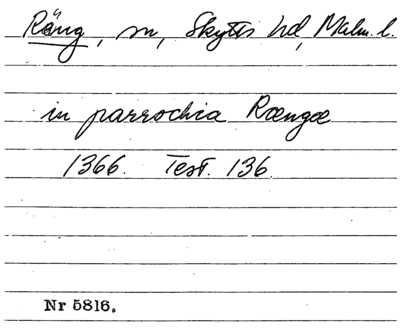 Räng, sn, Skytts hd, Malm. l.
in parrochia Rængæ
1366. Test. 136
Nr 5816.